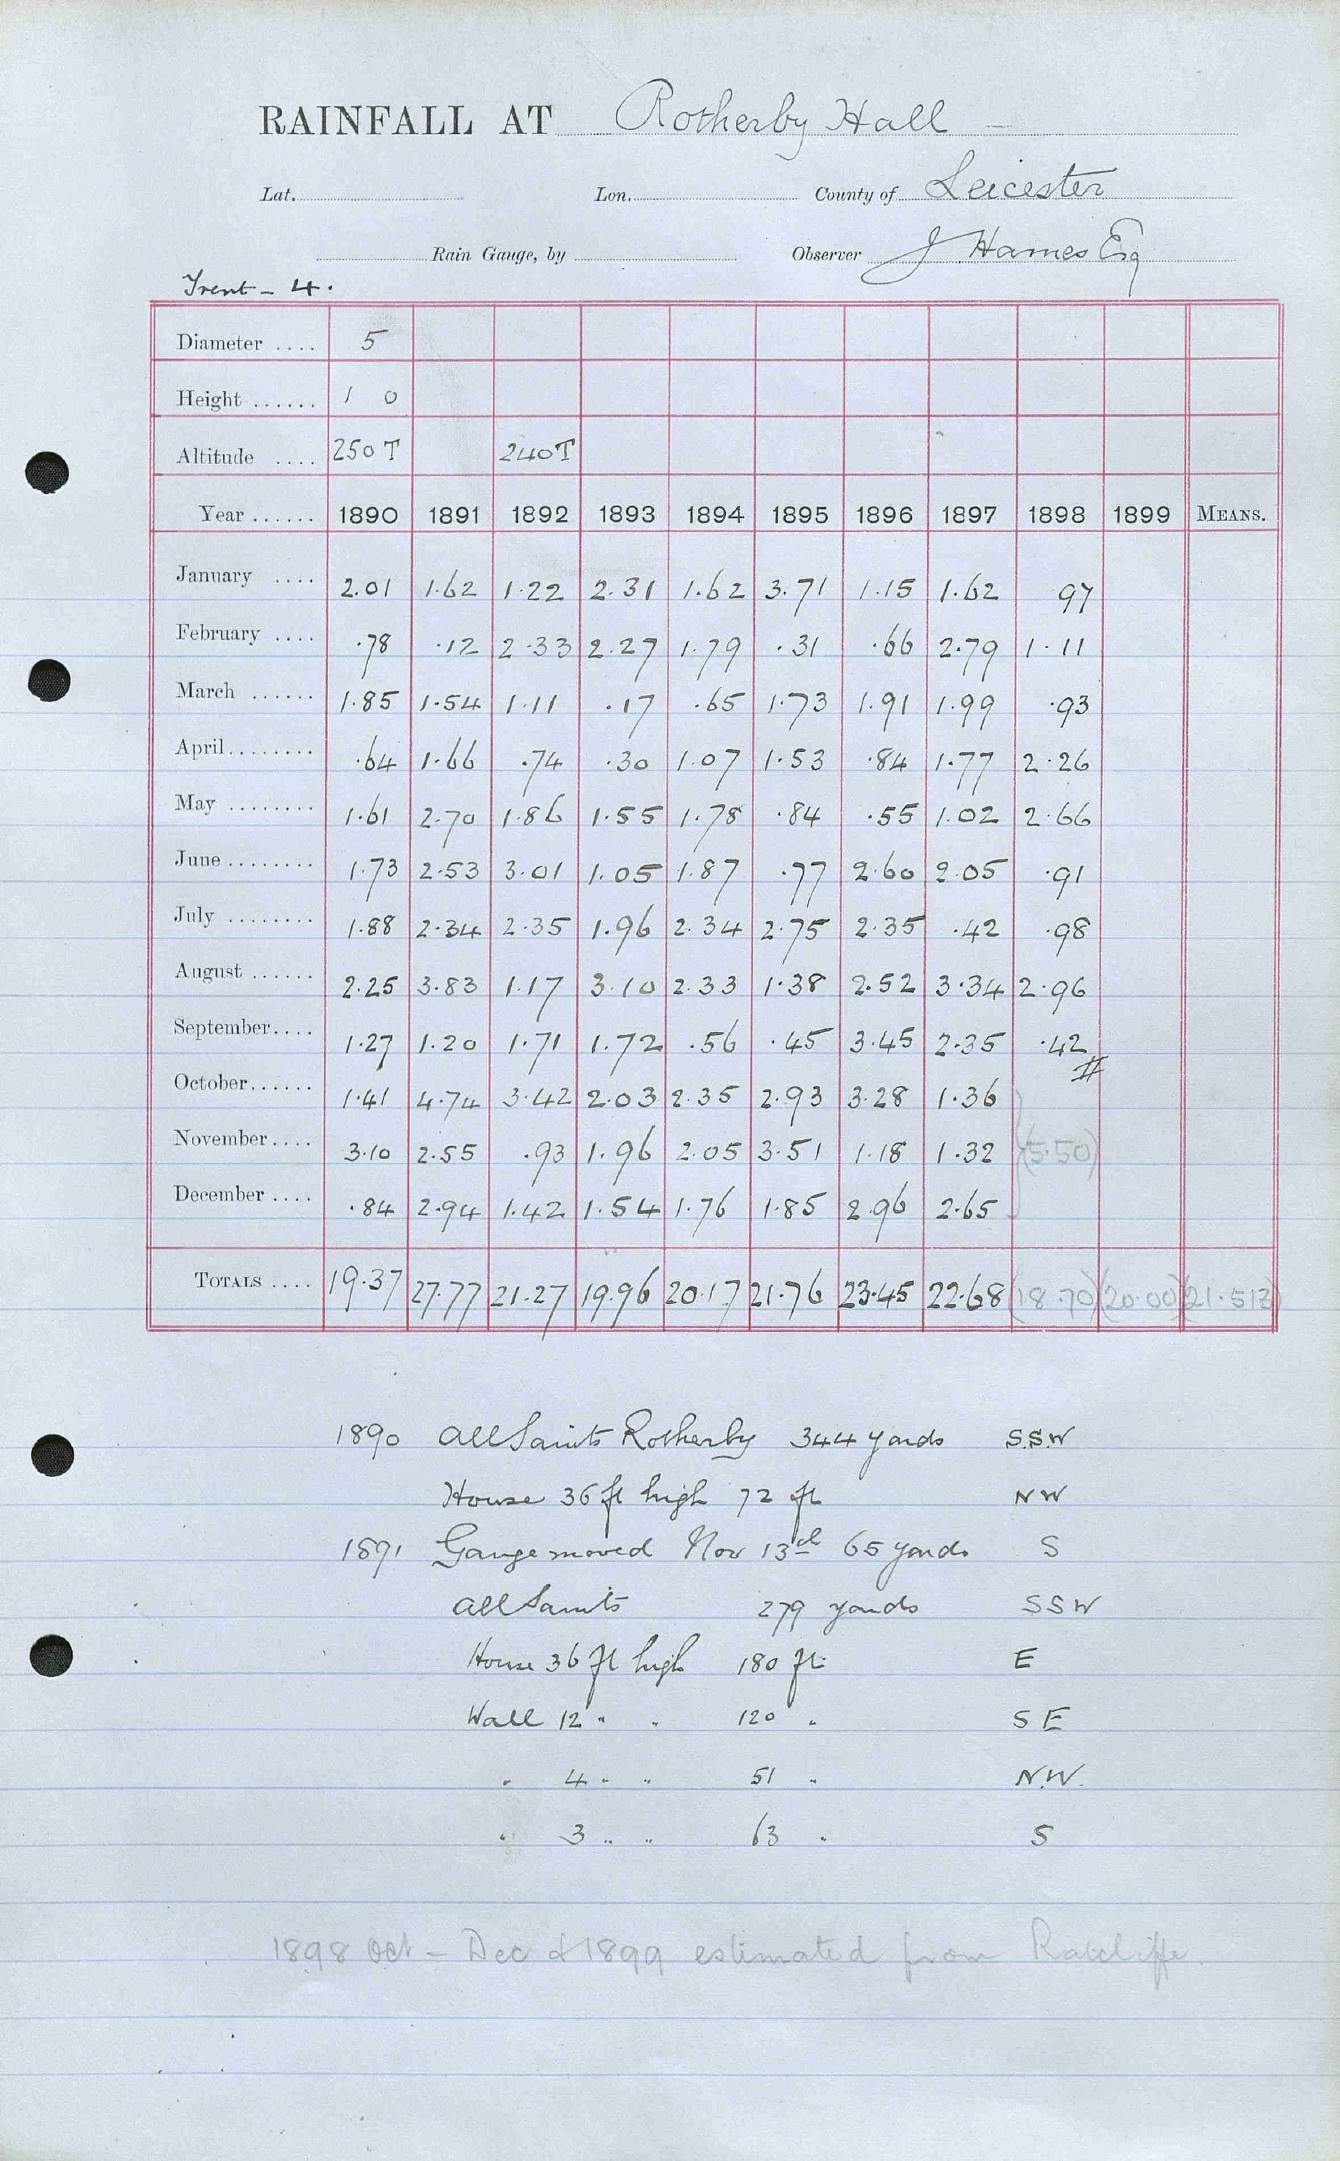 RAINFALL AT Rotherby Hall -
Lat. Lon. County of Leicester
Rain Gauge, by Observer J Hames Esq
Trent - 4.
Diameter .... 5
Height ...... 1 0
Altitude .... 250 T 240 T
Year ...... 1890 1891 1892 1893 1894 1895 1896 1897 1898 1899 MEANS.
January .... 2.01 1.62 1.22 2.31 1.62 3.71 1.15 1.62 .97
February .... .78 .12 2.33 2.27 1.79 .31 .66 2.79 1.11
March ...... 1.85 1.54 1.11 .17 .65 1.73 1.91 1.99 .93
April........ .64 1.66 .74 .30 1.07 1.53 .84 1.77 2.26
May ........ 1.61 2.70 1.86 1.55 1.78 .84 .55 1.02 2.66
June ........ 1.73 2.53 3.01 1.05 1.87 .77 2.60 2.05 .91
July ........ 1.88 2.34 2.35 1.96 2.34 2.75 2.35 .42 .98
August ...... 2.25 3.83 1.17 3.10 2.33 1.38 2.52 3.34 2.96
September.... 1.27 1.20 1.71 1.72 .56 .45 3.45 2.35 .42
October...... 1.41 4.74 3.42 2.03 2.35 2.93 3.28 1.36
November.... 3.10 2.55 .93 1.96 2.05 3.51 1.18 1.32 (5.50)
December .... .84 2.94 1.42 1.54 1.76 1.85 2.96 2.65
TOTALS .... 19.37 27.77 21.27 19.96 20.17 21.76 23.45 22.68 (18.70) (20.00) (21.513)
1890 All Saints Rotherby 344 yards S.S.W
House 36 ft high 72 ft NW
1891 Gauge moved Nov 13th 65 yards S
All Saints 279 yards SSW
House 36 ft high 180 ft. E
Wall 12 " " 120 " SE
" 4 " " 51 " N.W.
" 3 " " 63 " S
1898 Oct - Dec & 1899 estimated from Ratcliffe.